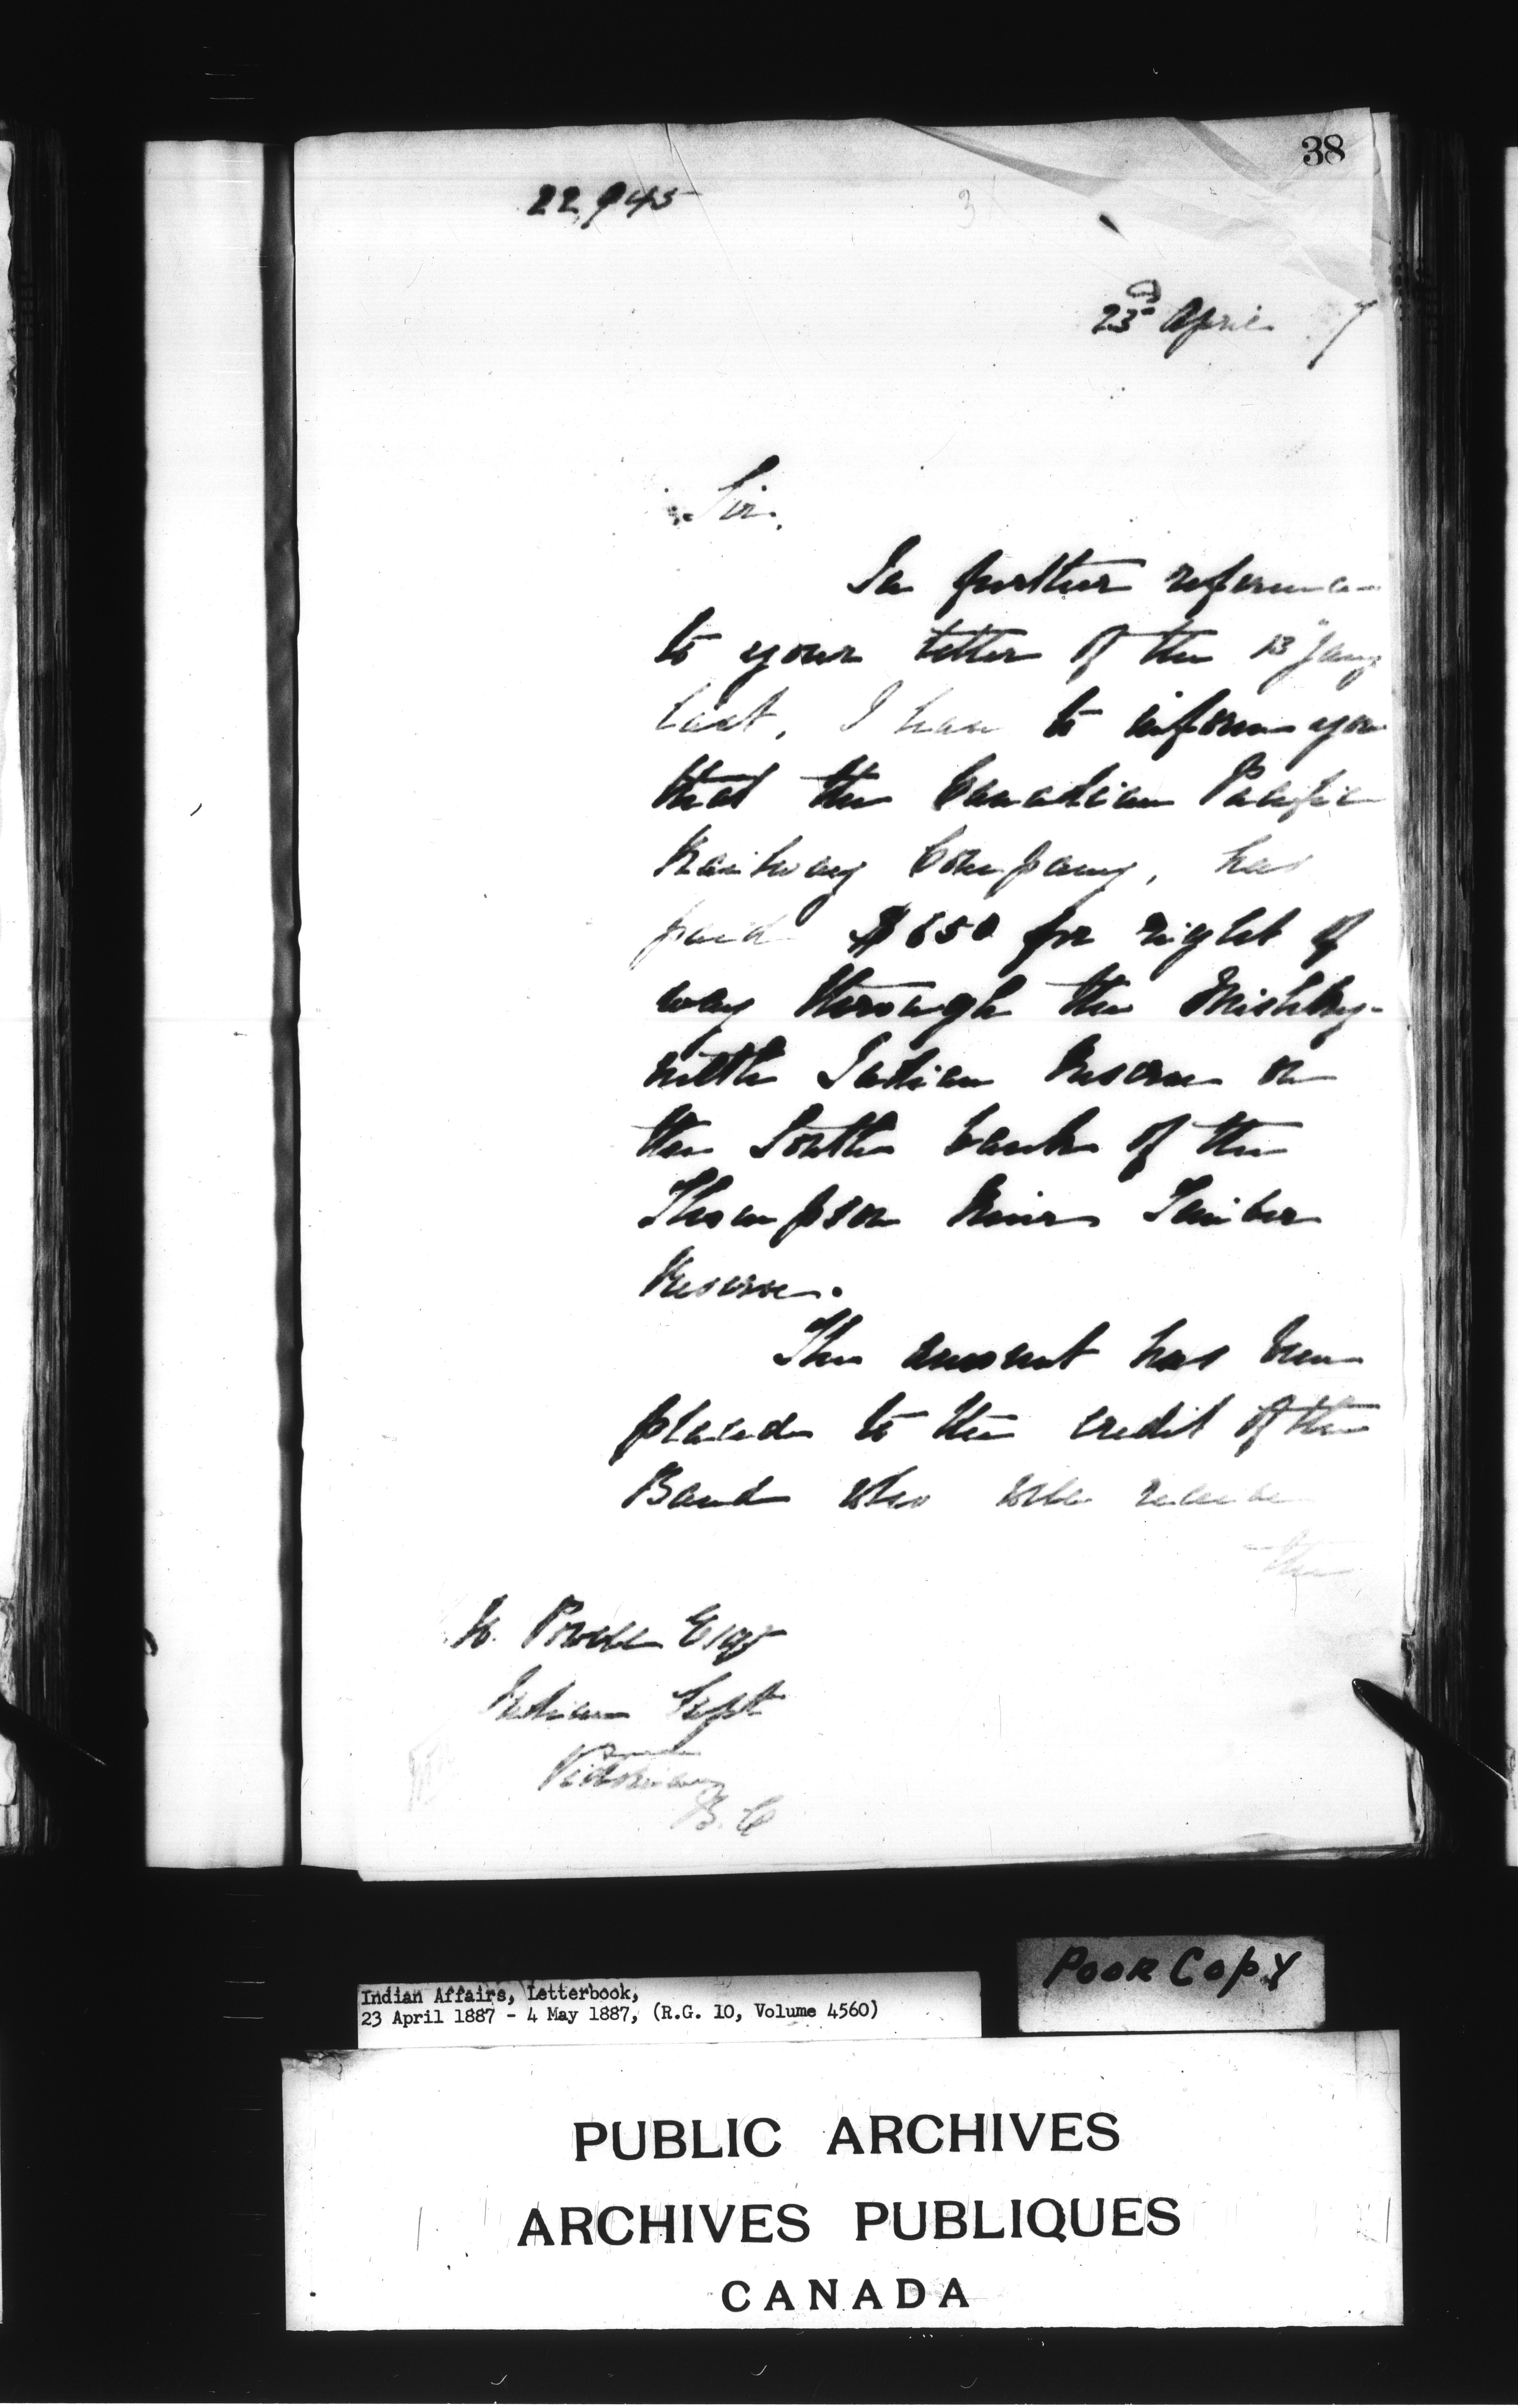 38
22,945
23rd April 7
Sir,
In further reference
to your letter of the 13" Jany
last, I have to inform you
that the Canadian Pacific
Railway Company, has
paid $650 for right of
way through the
Indian Reserve on
the South bank of the
Thompson River Timber
Reserve.
The amount has been
placed to the credit of the
Band who will receive
the
Powell Esqr
Indian Supt
Victoria
B.C
Poor Copy
Indian Affairs, Letterbook,
23 April 1887 - 4 May 1887, (R.G. 10, Volume 4560)
PUBLIC ARCHIVES
ARCHIVES PUBLIQUES
CANADA